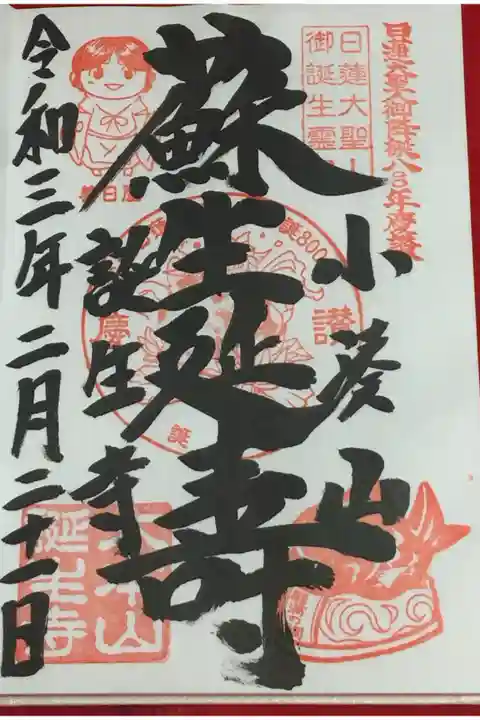 日蓮大聖人御降誕八〇〇年慶讃
日蓮大聖人
御誕生霊
小湊山
蘇生延寿
誕生寺
令和三年二月二十一日
讃
慶
誕
大本山
誕生寺